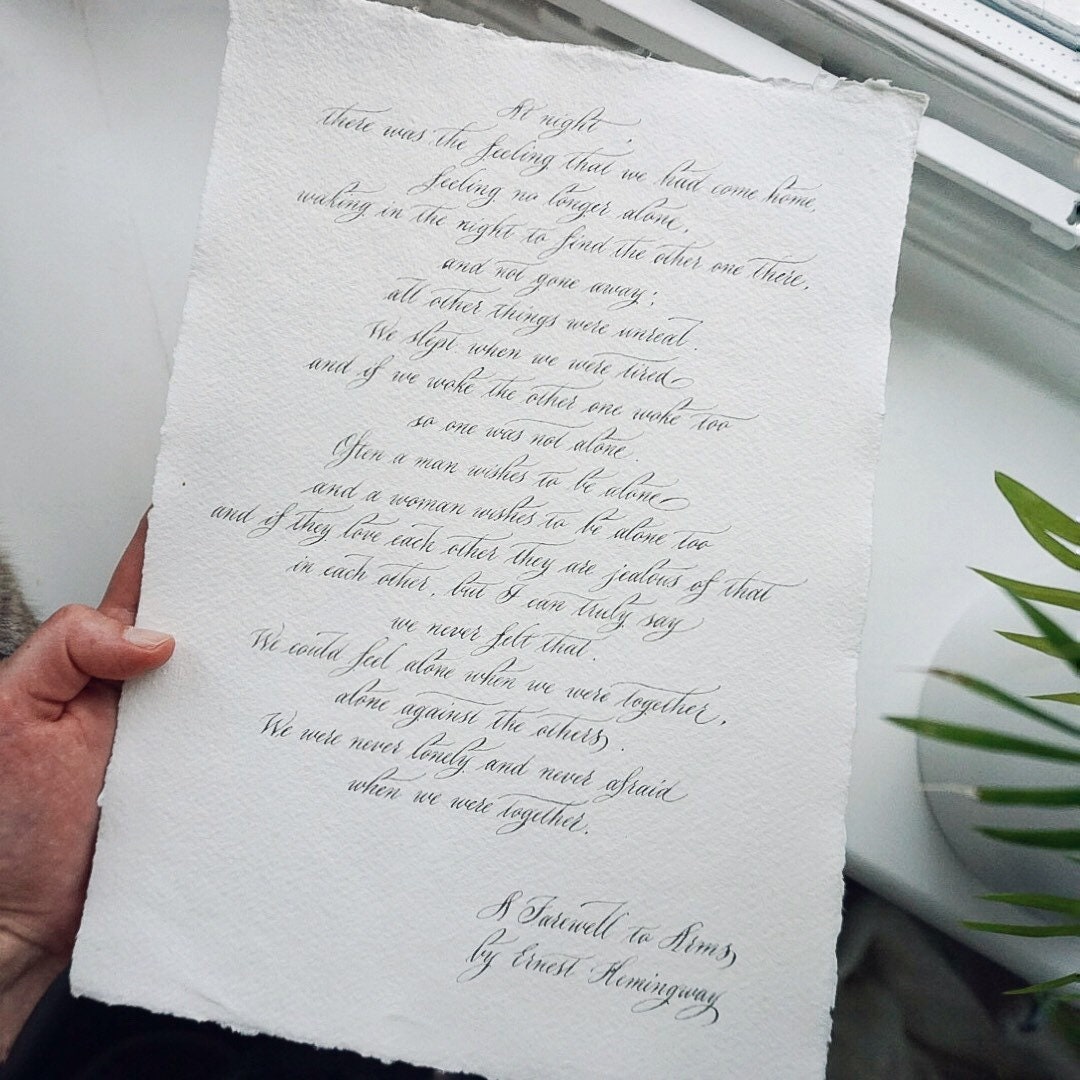 At night,
there was the feeling that we had come home,
feeling no longer alone,
waking in the night to find the other one there,
and not gone away;
all other things were unreal.
We slept when we were tired
and if we woke the other one woke too
so one was not alone.
Often a man wishes to be alone
and a woman wishes to be alone too
and if they love each other they are jealous of that
in each other, but I can truly say
we never felt that.
We could feel alone when we were together,
alone against the others.
We were never lonely and never afraid
when we were together.
A Farewell to Arms,
by Ernest Hemingway